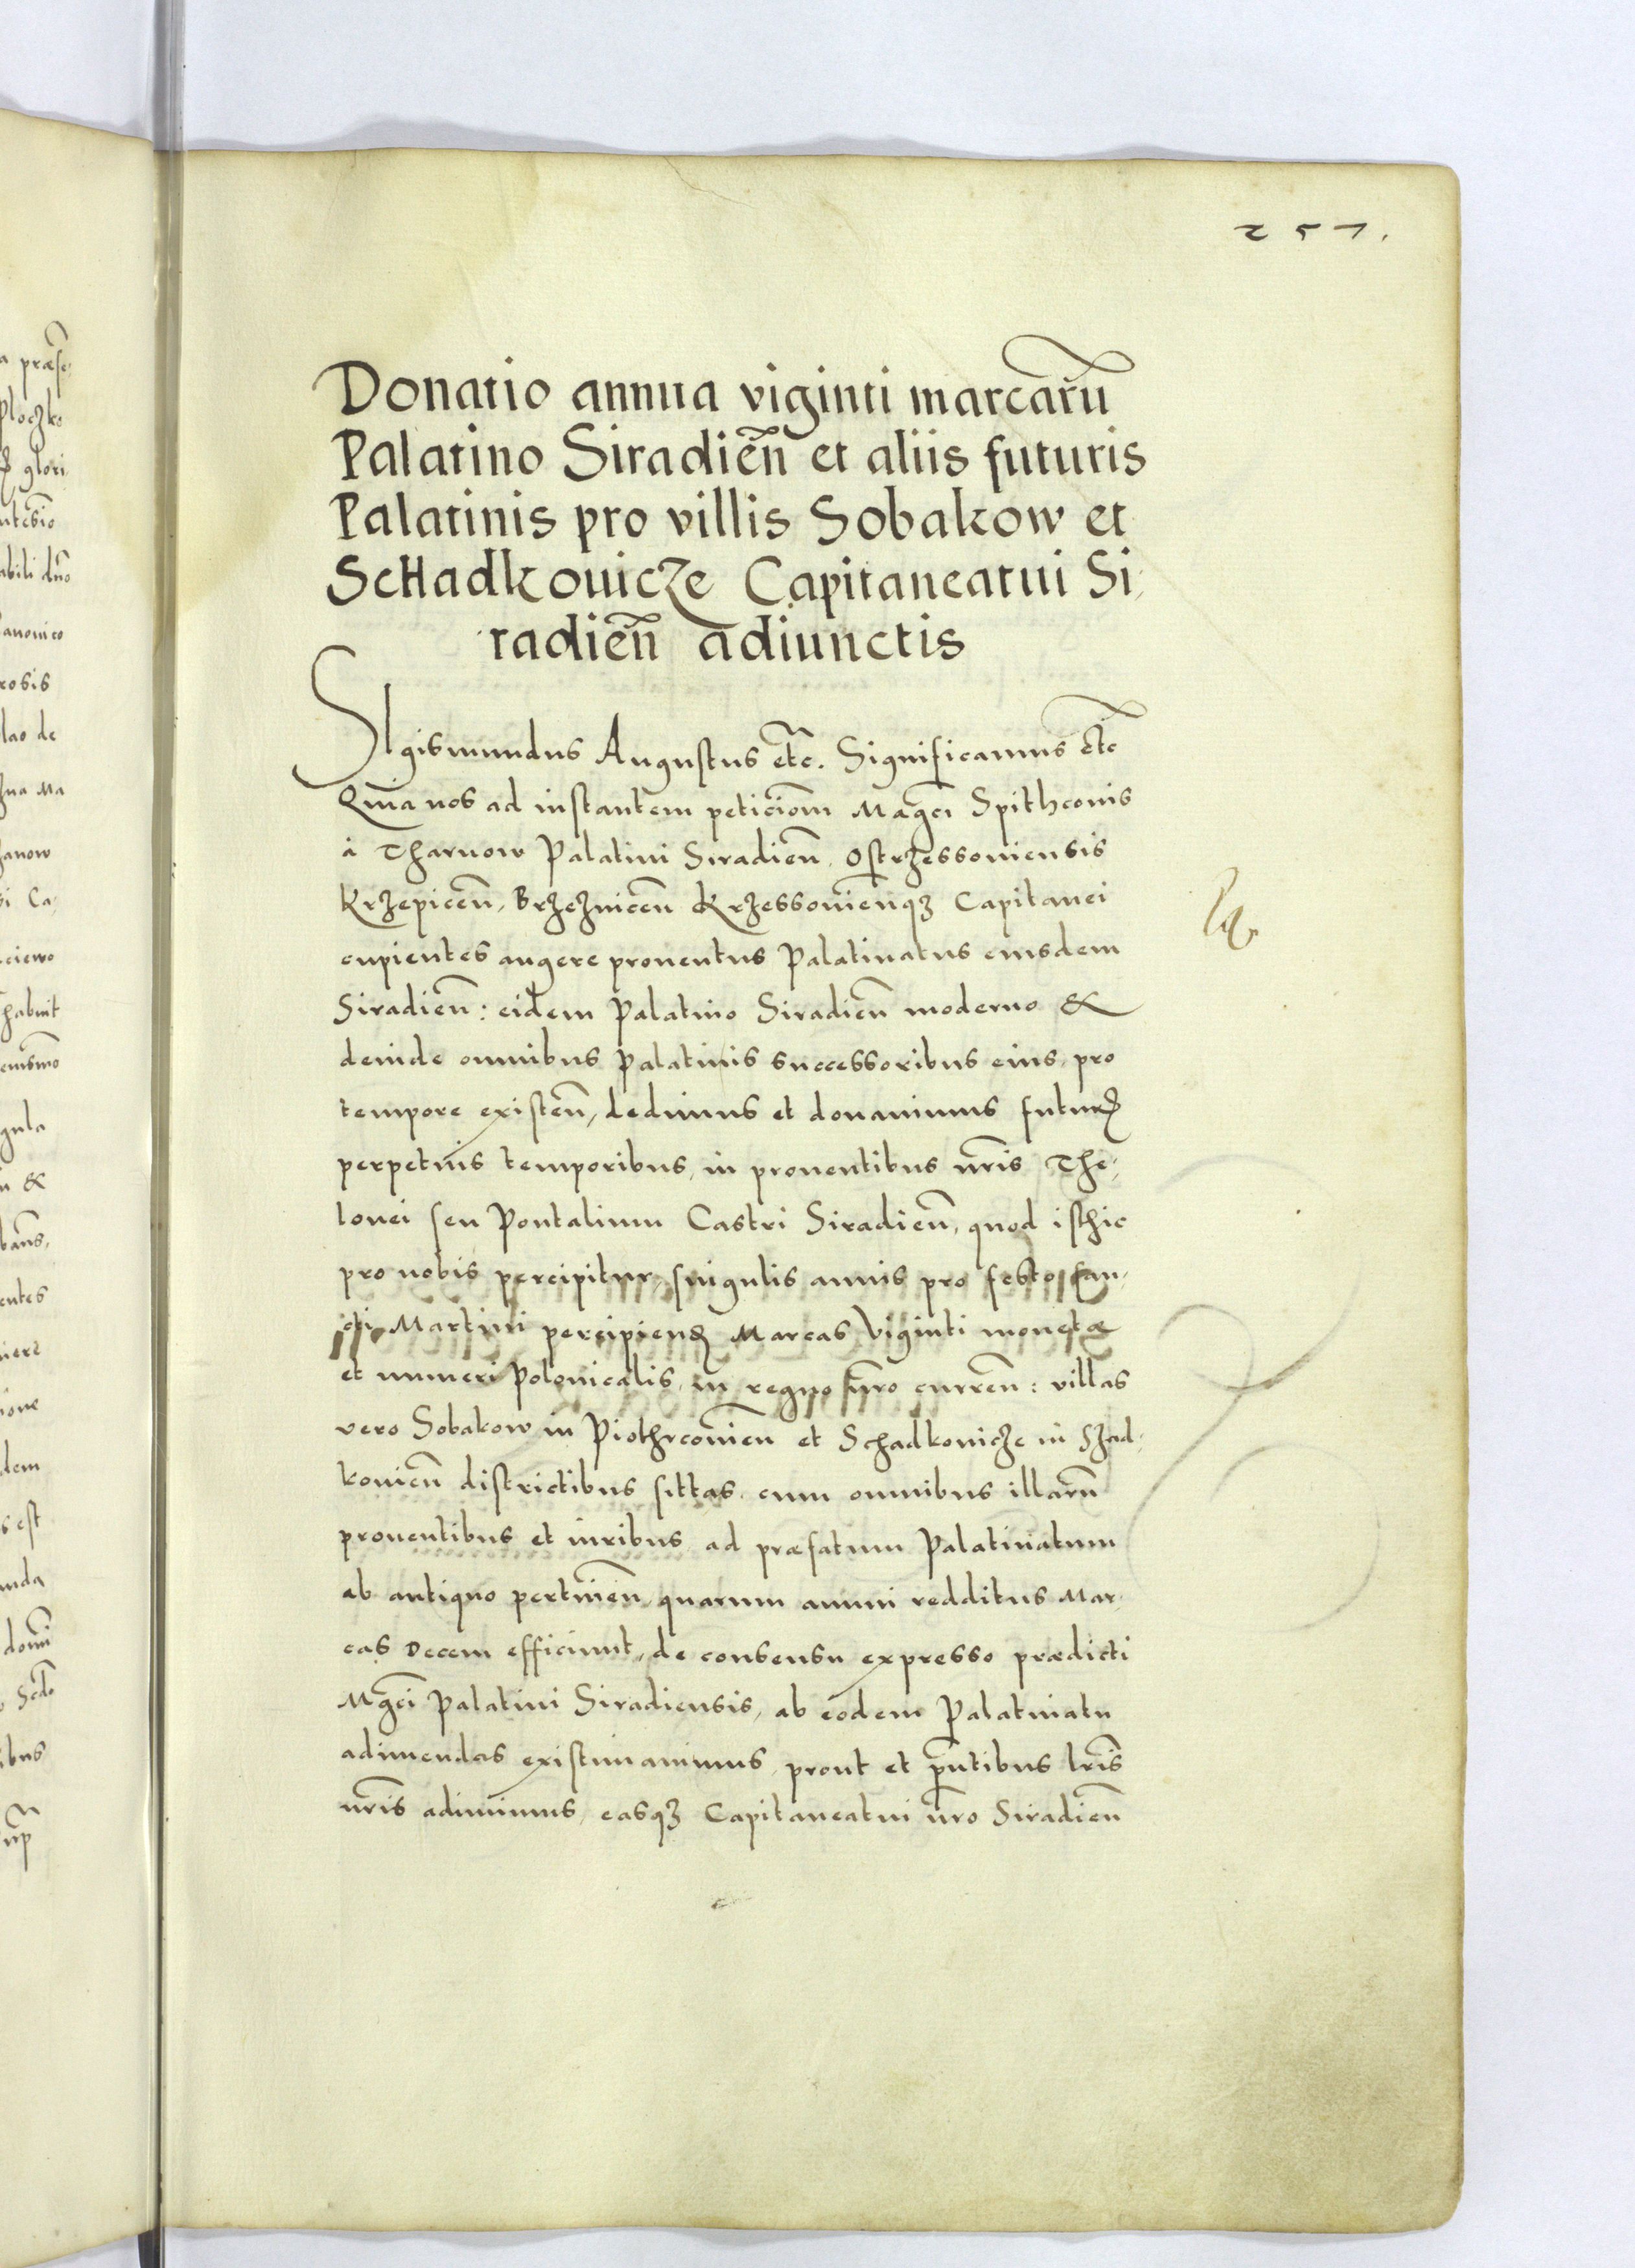 257.
Donatio annua viginti marcarū
Palatino Siradien̄ et aliis futuris
Palatinis pro villis Sobakow et
Schadkouicze Capitaneatui Si,
radien̄ adiunctis
SIgismundus Augustus etc̄. Significamus etc̄
Quia nos ad instantem peticiom̄ Magc̄i Spithconis
à Tharnow Palatini Siradien̄, Ostrzessouiensis
Krzepicen̄, Brzeznicen̄ Krzessouien̄qз Capitanei
cupientes augere prouentus Palatinatus eiusdem
Siradien̄: eidem Palatino Siradien̄ moderno &
deinde omnibus Palatinis successoribus eius, pro
tempore existen̄, dedimus et donauimus futurꝭ
perpetuis temporibus, in prouentibus nr̄is The,
lonei seu Pontalium Castri Siradien̄, quod isthic
pro nobis percipitur, singulis annis pro festo san,
cti Martini percipienꝭ Marcas Viginti monetæ
et numeri Polonicalis, in regno nr̄o curren̄: villas
vero Sobakow in Piothrcouien̄ et Schadkouicze in Szad,
kouien̄ districtibus sittas, cum omnibus illarū
prouentibus et iuribus ad præfatum Palatinatum
ab antiquo pertinen̄, quarum annui redditus Mar,
cas Decem efficiunt, de consensu expresso prædicti
Mgc̄i Palatini Siradiensis, ab eodem Palatinatu
adimendas existimauimus, prout et p̄ntibus lr̄is
nr̄is adimimus, easqз Capitaneatui nr̄o Siradien̄